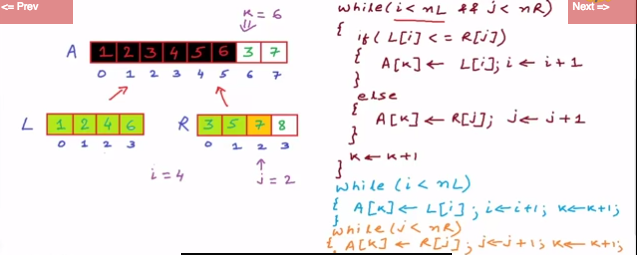 <= Prev
Next =>
K = 6
A 1 2 3 4 5 6 3 7
0 1 2 3 4 5 6 7
L 1 2 4 6
0 1 2 3
R 3 5 7 8
0 1 2 3
i = 4
j = 2
while(i < nL && j < nR)
{ if( L[i] <= R[j])
{ A[K] ← L[i]; i ← i+1
}
else
{ A[K] ← R[j]; j ← j+1
}
K ← K+1
}
while (i < nL)
{ A[K] ← L[i]; i←i+1; K←K+1;
}
while (j < nR)
{ A[K] ← R[j]; j←j+1; K←K+1;